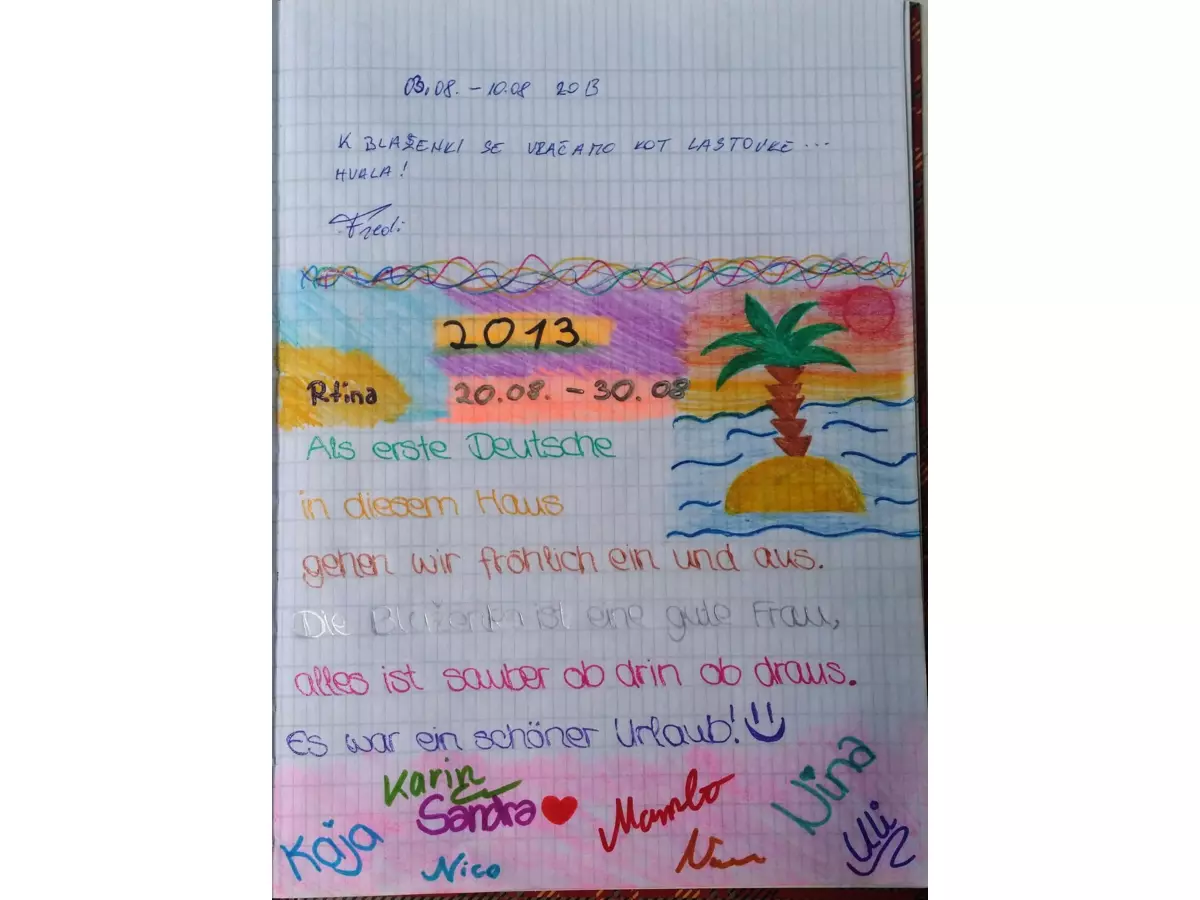 03.08. - 10.08 2013
K BLAŽENKI SE VRAČAMO KOT LASTOVKE...
HVALA!
Fredi
2013
Rtina 20.08. - 30.08
Als erste Deutsche
in diesem Haus
gehen wir fröhlich ein und aus.
Die Blaženka ist eine gute Frau,
alles ist sauber ob drin ob draus.
Es war ein schöner Urlaub!
Karin
Sandra
Mambo
Nina
Kaja
Nico
Uli